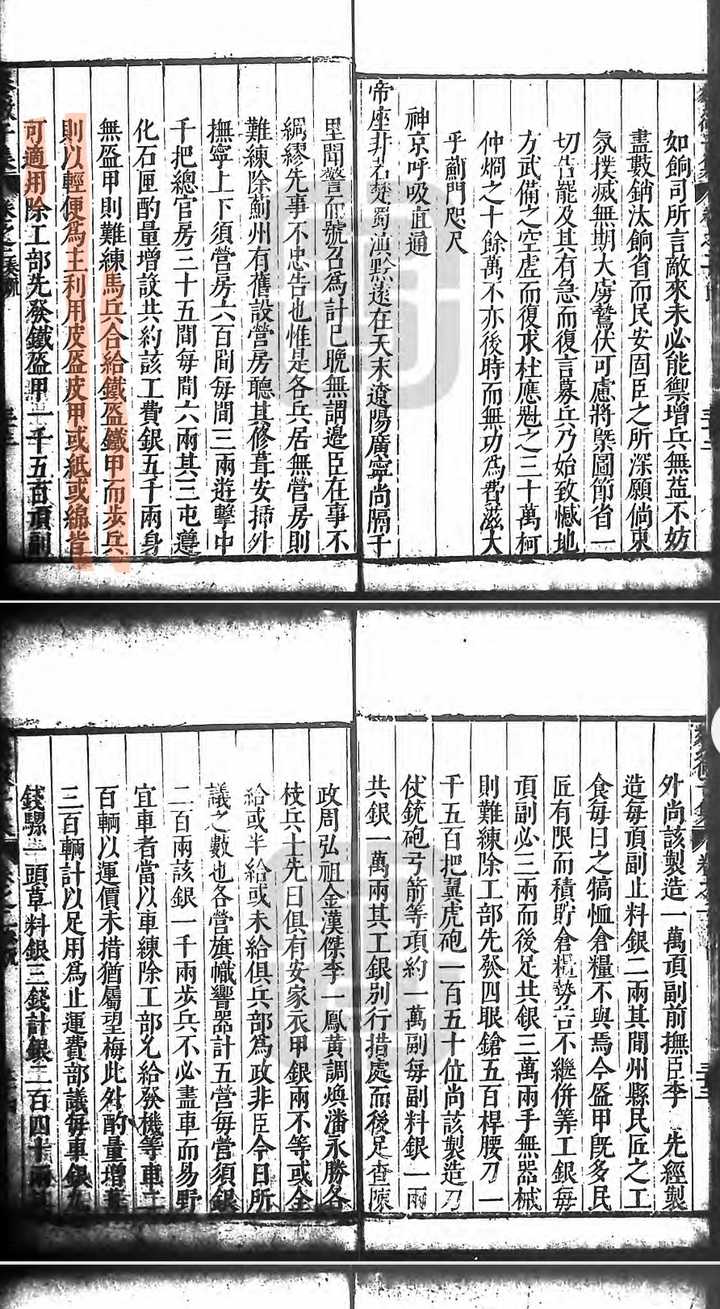 如餉司所言敵來未必能禦增兵無益不妨
盡數銷汰餉省而民安固臣之所深願倘東
氛撲滅無期大虜鷙伏可慮將槩圖節省一
切告罷及其有急而復言募兵乃始致憾地
方武備之空虛而復求杜應魁之三十萬柯
仲烱之十餘萬不亦後時而無功為費滋大
乎薊門咫尺
神京呼吸直通
帝座非若楚蜀滇黔遠在天末遼陽廣寧尚隔千
里聞警而號召為計已晚無謂邊臣在事不
綢繆先事不忠告也惟是各兵居無營房則
難練除薊州有舊設營房聽其修葺安揷外
撫寧上下須營房六百間每間三兩遊擊中
千把總官房三十五間每間六兩其三屯遵
化石匣酌量增設共約該工費銀五千兩身
無盔甲則難練馬兵合給鐵盔鐵甲而步兵
則以輕便為主利用皮盔皮甲或紙或綿皆
可適用除工部先發鐵盔甲一千五百頂副
外尚該製造一萬頂副前撫臣李 先經製
造每頂副止料銀二兩其間州縣民匠之工
食每日之犒恤倉糧不與焉今盔甲既多民
匠有限而積貯倉糧勢苦不繼併筭工銀每
頂副必三兩而後足共銀三萬兩手無器械
則難練除工部先發四眼鎗五百桿腰刀一
千五百把翼虎砲一百五十位尚該製造刀
仗銃砲弓箭等項約一萬副每副料銀一兩
共銀一萬兩其工銀別行措處而後足查陳
政周弘祖金漢傑李一鳳黃調煥潘永勝各
枝兵士先日俱有安家衣甲銀兩不等或全
給或半給或未給俱兵部為政非臣今日所
議之數也各營旗幟響器計五營每營須銀
二百兩該銀一千兩步兵不必盡車而易野
宜車者當以車練除工部允給發機等車二
百輛以運價未措猶屬望梅此外酌量增
三百輛計以足用為止運費部議每車銀九
錢騾一頭草料銀三錢計銀二百四十兩